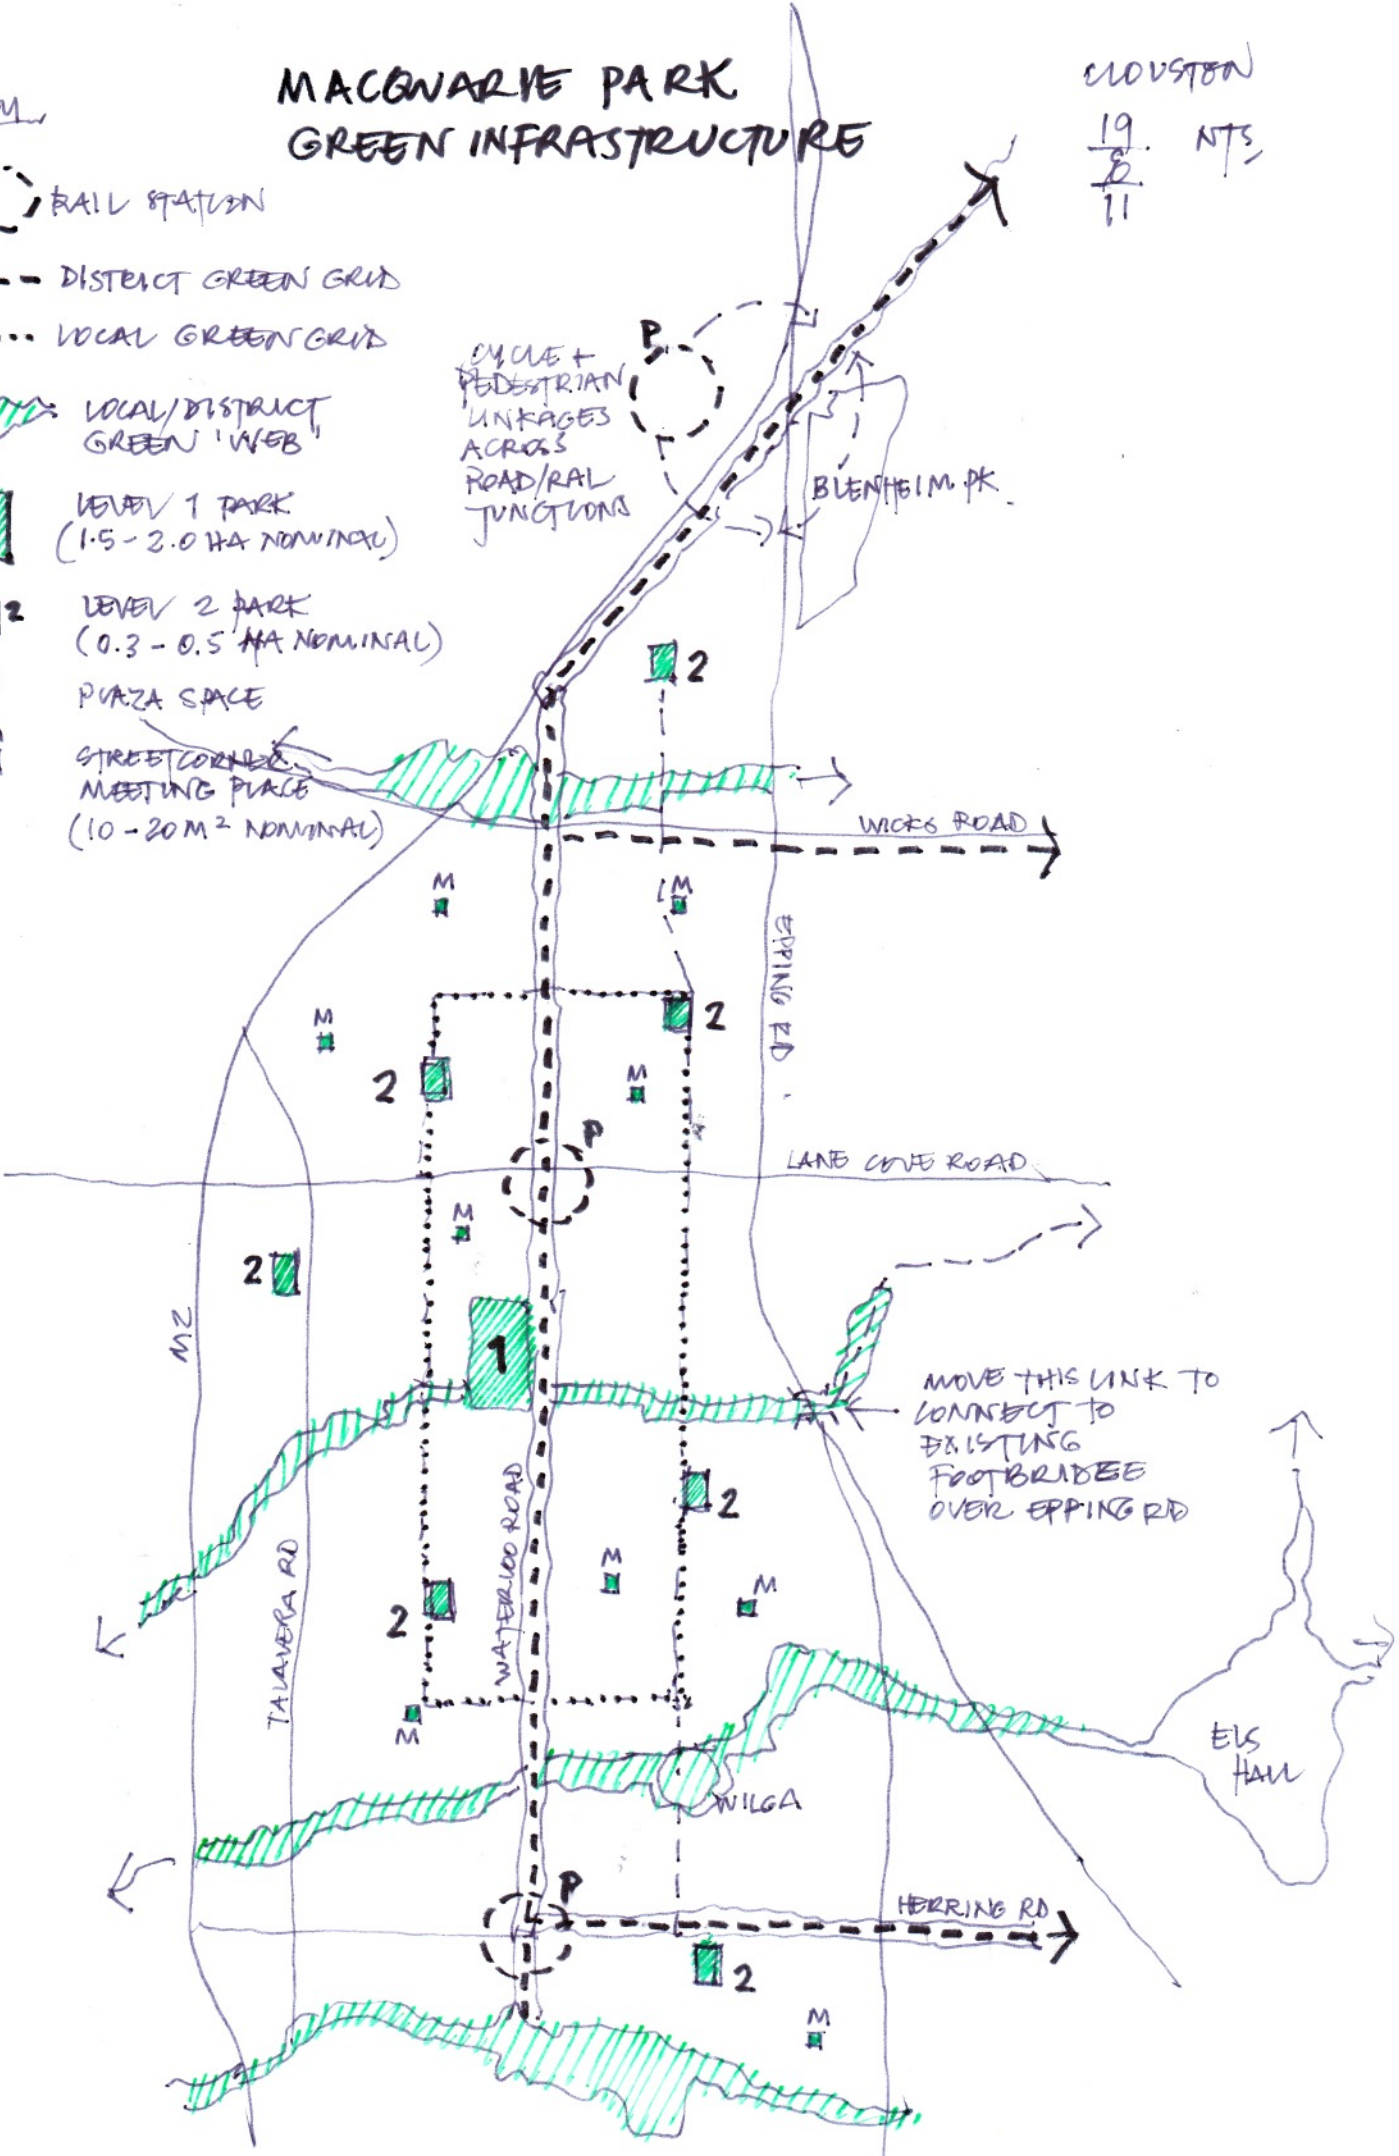 MACQUARIE PARK
GREEN INFRASTRUCTURE
CLOUSTON
19
8
11
NTS
RAIL STATION
DISTRICT GREEN GRID
LOCAL GREEN GRID
LOCAL/DISTRICT
GREEN 'WEB'
LEVEL 1 PARK
(1.5 - 2.0 HA NOMINAL)
2
LEVEL 2 PARK
(0.3 - 0.5 HA NOMINAL)
PLAZA SPACE
STREET CORNER
MEETING PLACE
(10 - 20 M² NOMINAL)
P
CYCLE +
PEDESTRIAN
LINKAGES
ACROSS
ROAD/RAL
JUNCTIONS
BLENHEIM PK
2
WICKS ROAD
M
M
EPPING RD
M
2
2
M
P
LANE COVE ROAD
M
2
M2
1
MOVE THIS LINK TO
CONNECT TO
EXISTING
FOOTBRIDGE
OVER EPPING RD
2
WATERLOO ROAD
TALAVERA RD
M
M
2
M
ELS
HALL
WILGA
P
HERRING RD
2
M